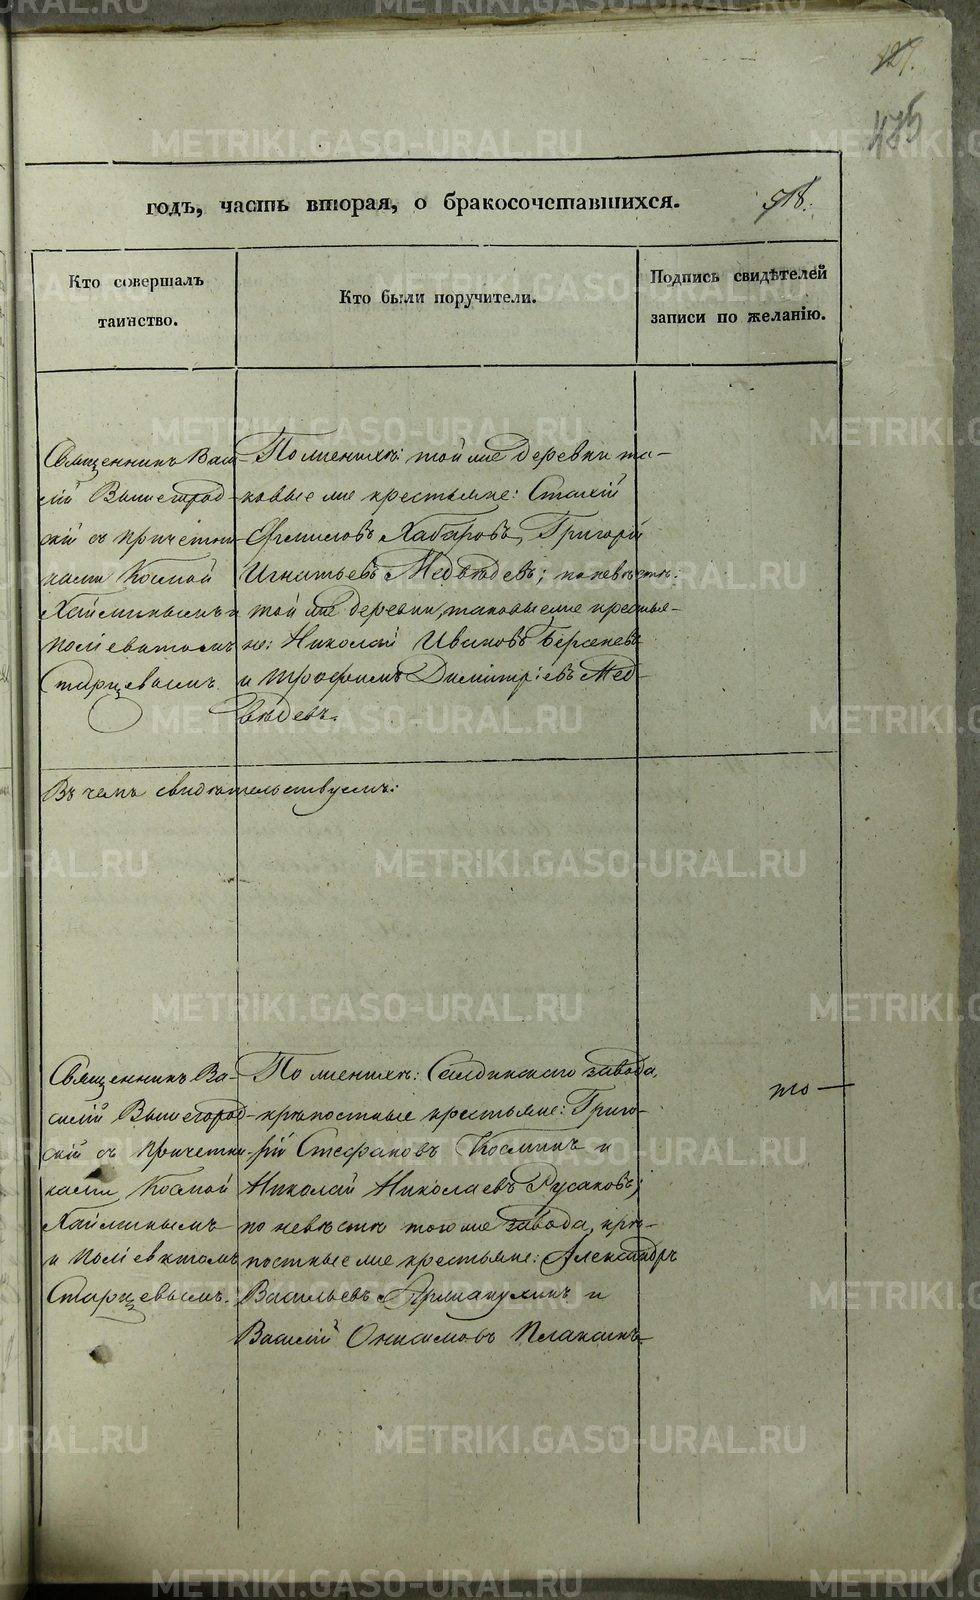 129.
475
годъ, часть вторая, о бракосочетавшихся.
518.
Кто совершалъ
таинство.
Кто были поручители.
Подпись свидѣтелей
записи по желанію.
Священникъ Васи-
лій Вышегород-
скій съ причетни-
ками Космой
Хайминымъ и
Поліевктомъ
Старцевымъ.
По женихѣ: той же деревни та-
ковые же крестьяне: Стахій
Хабаровъ, Григорій
Игнатьевъ Медвѣдевъ; по невѣстѣ:
той же деревни, таковые же крестья-
не: Николай Ивановъ Берсеневъ
и Трофимъ Димитріевъ Мед-
вѣдевъ.
Въ чемъ свидѣтельствуемъ:
Священникъ Ва-
силій Вышегород-
скій съ причетни-
ками Космой
Хайминымъ
и Поліевктомъ
Старцевымъ.
По женихѣ: Салдинскаго завода,
крѣпостные крестьяне: Григо-
рій Стефановъ Косминъ и
Николай Николаевъ Русаковъ;
по невѣстѣ того же завода, крѣ-
постные же крестьяне: Александръ
Васильевъ и
Василій Онисимовъ Плаксинъ
METRIKI.GASO-URAL.RU